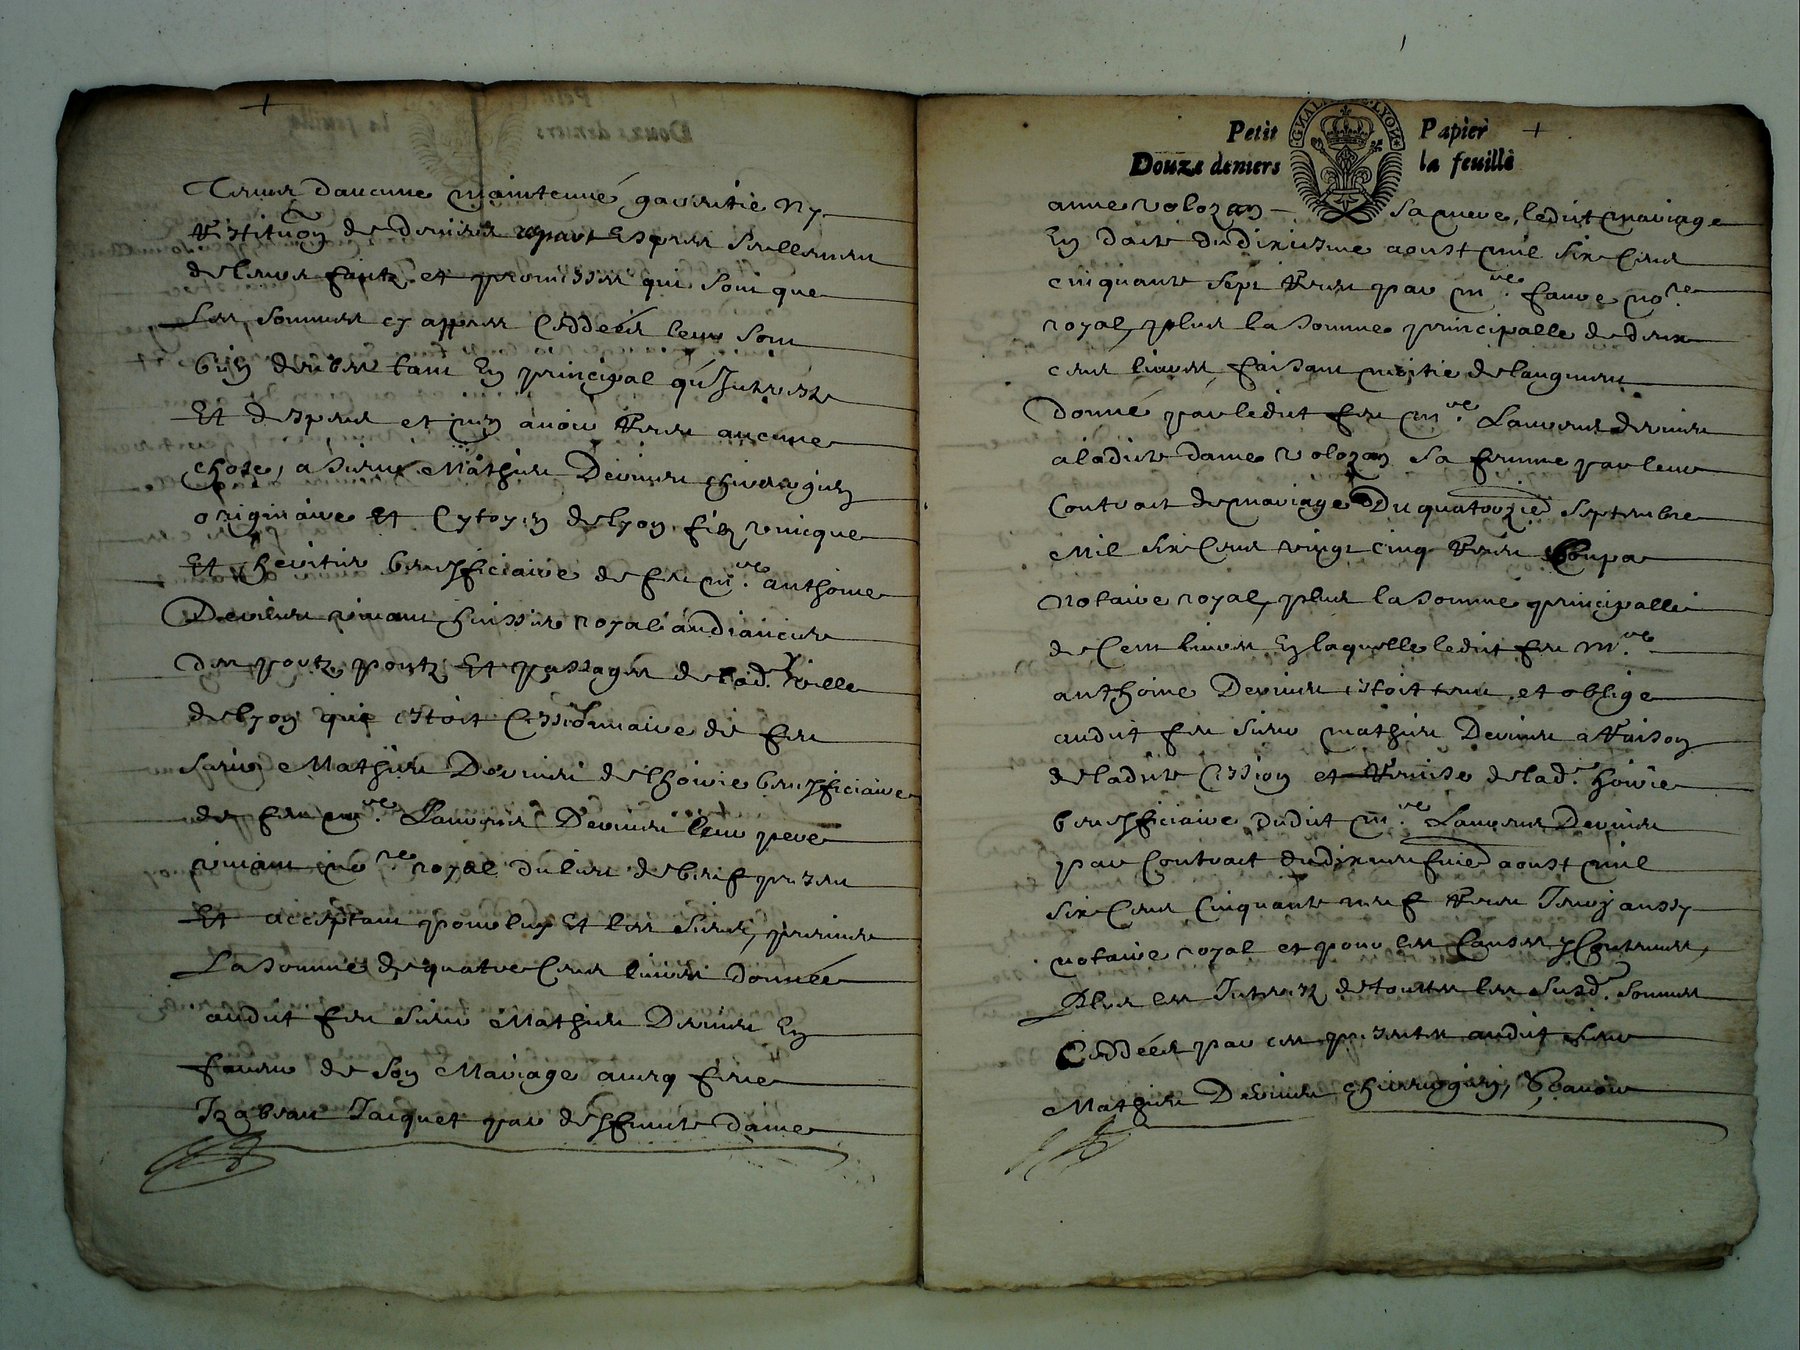 Tenus daucune maintenue garentie ny
restitution de deniers part Expres seullement
de leurs faitz et promisses qui sont que
Les sommes cy appres Ceddées leur sont
bien deubes tant En principal qu'Interestz
Et despens et n'en avoir Receu aucune
chose, a sieur Mathieu Deveine chirurgien
originaire Et Cytoyen de lyon filz unicque
Et heritier beneffíciaire de feu mre. anthoine
Deveine vivant huissier royal audiancier
des portz pontz Et passages de lad. Ville
de lyon qui estoit Cessionnaire de feu
sieur Mathieu Deveine de lhoirie beneffíciaire
de feu mre. Laurens Deveine leur pere
vivant nore royal du lieu de present
Et acceptant pour luy Et les siens, premier
La somme de quatre Cens livres donnée
audit feu sieur Mathieu Deveine En
faveur de son Mariage avecq feue
Izabeau Jacquet par deffunte dame
Petit Papier
Douze deniers la feuille
GNALITE LYON
anne volozan sa mere, ledit mariage
En datte du dixiesme aoust mil six Cens
cinquante sept Receu par mre. faure nore.
royal, plus la somme principalle de deux
cens livres faisant moitie de laugment
donné par ledit feu mre. Laurens deveine
a ladite dame volozan sa femme par leur
Contrait de mariage Du quatorzie septembre
Mil six Cens vingt cinq Receu Coupa
Notaire royal, plus la somme principalle
de Cent livres En laquelle ledit feu mre.
anthoine Deveine estoit tenu et oblige
audit feu sieur mathieu Deveine a Raison
de ladite Cession et Remise de lad. hoirie
beneffíciaire dudit mre. Laurens Deveine
par Contrait du aoust mil
six Cens Cinquante neuf Receu aussy
notaire royal et pour les Causes y Contenues,
Plus les Interestz de toutes les susd. sommes
Ceddées par ces presentes audit sieur
Mathieu Deveine chirurgien, Scavoir